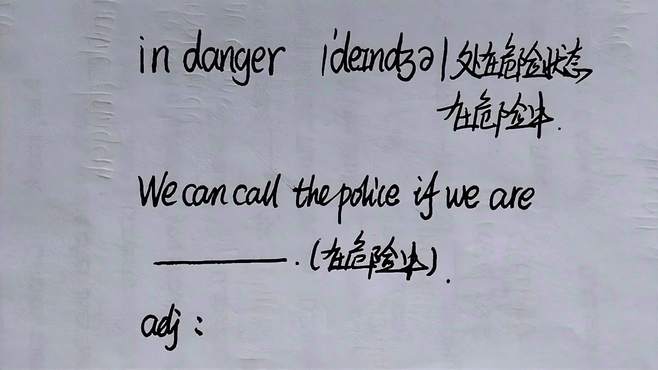 in danger |'deɪndʒə| 处在危险状态
在危险中.
We can call the police if we are
________. (在危险中).
adj: